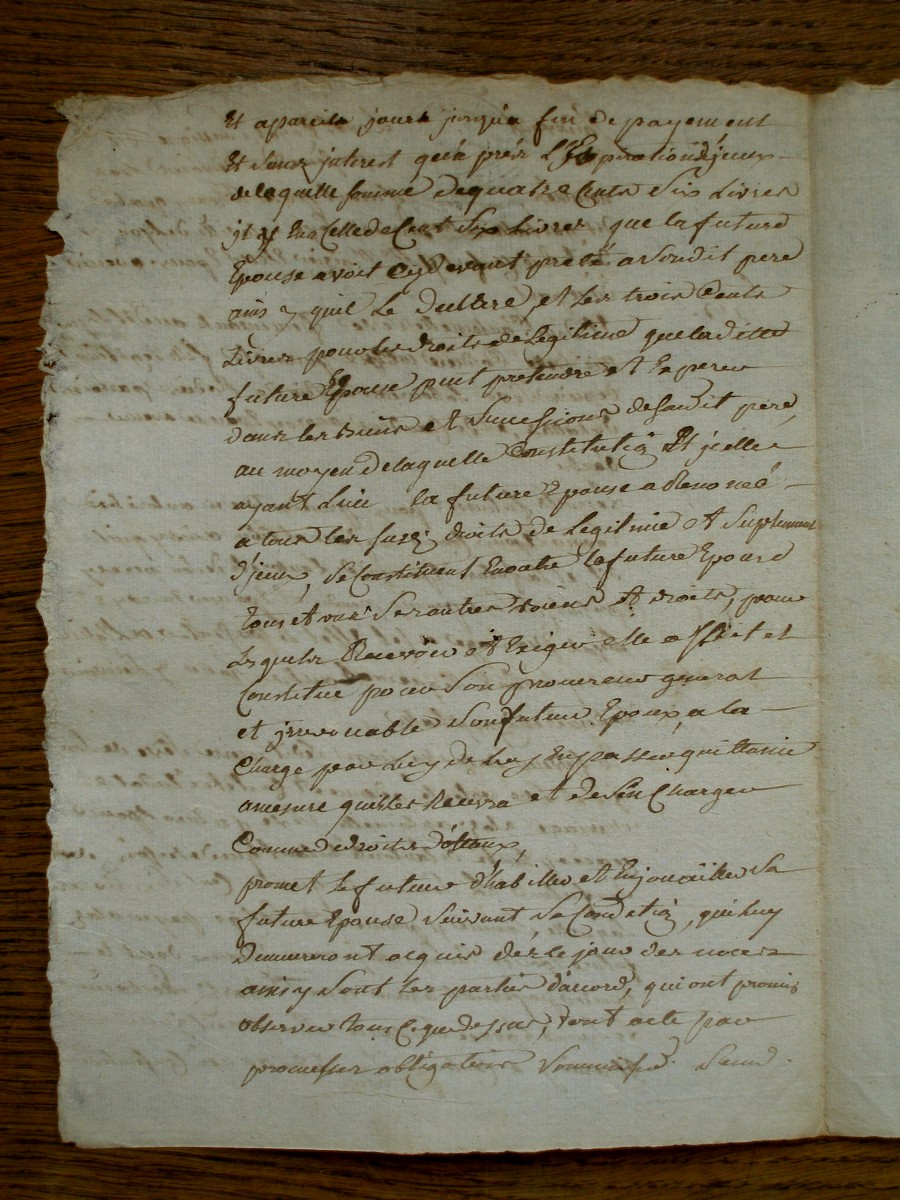 Et apareils jours jusqu'a fin de payement
Et sans jnterest qu'a prés L'Expiration d'jceux
de laquelle somme de quatre Cents Six Livres
jl y En a Celle de Cent Six Livres que la future
Epouse avoit Cydevant preté a Sondit pere
ainsy quil Le Déclere et Les trois Cents
Livres pour les droits de Légitime que laditte
future Epouse peut pretendre et Esperer
dans les biens et Successions de Sondit pere,
au moyen de laquelle Constitutiõ Et jcelle
ayant Lieu la future Epouse a Renoncé
a tous les susd. droits de Legitime et Suplement
d'jceux, Se Constituent Enoutre la future Epouse
tous et uns Ses autres biens Et droits, pour
Lesquels Recevoir et Exiger elle a fait et
Constitue pour Son procureur general
et jrrevocable Son futur Epoux, a la
Charge par Luy de Luy En passer quittance
amesure quil les Recevra et de Sen Charger
Comme droits dottaux,
promet Le futur d'habiller et Enjouailler Sa
future Epouse Suivant Sa Conditiõ, qui luy
Demeureront acquis dés le jour des noces
ainsy Sont Les parties d'acord, qui ont promis
observer tout Ceque dessus, dont acte par
promesses obligations Soumis.